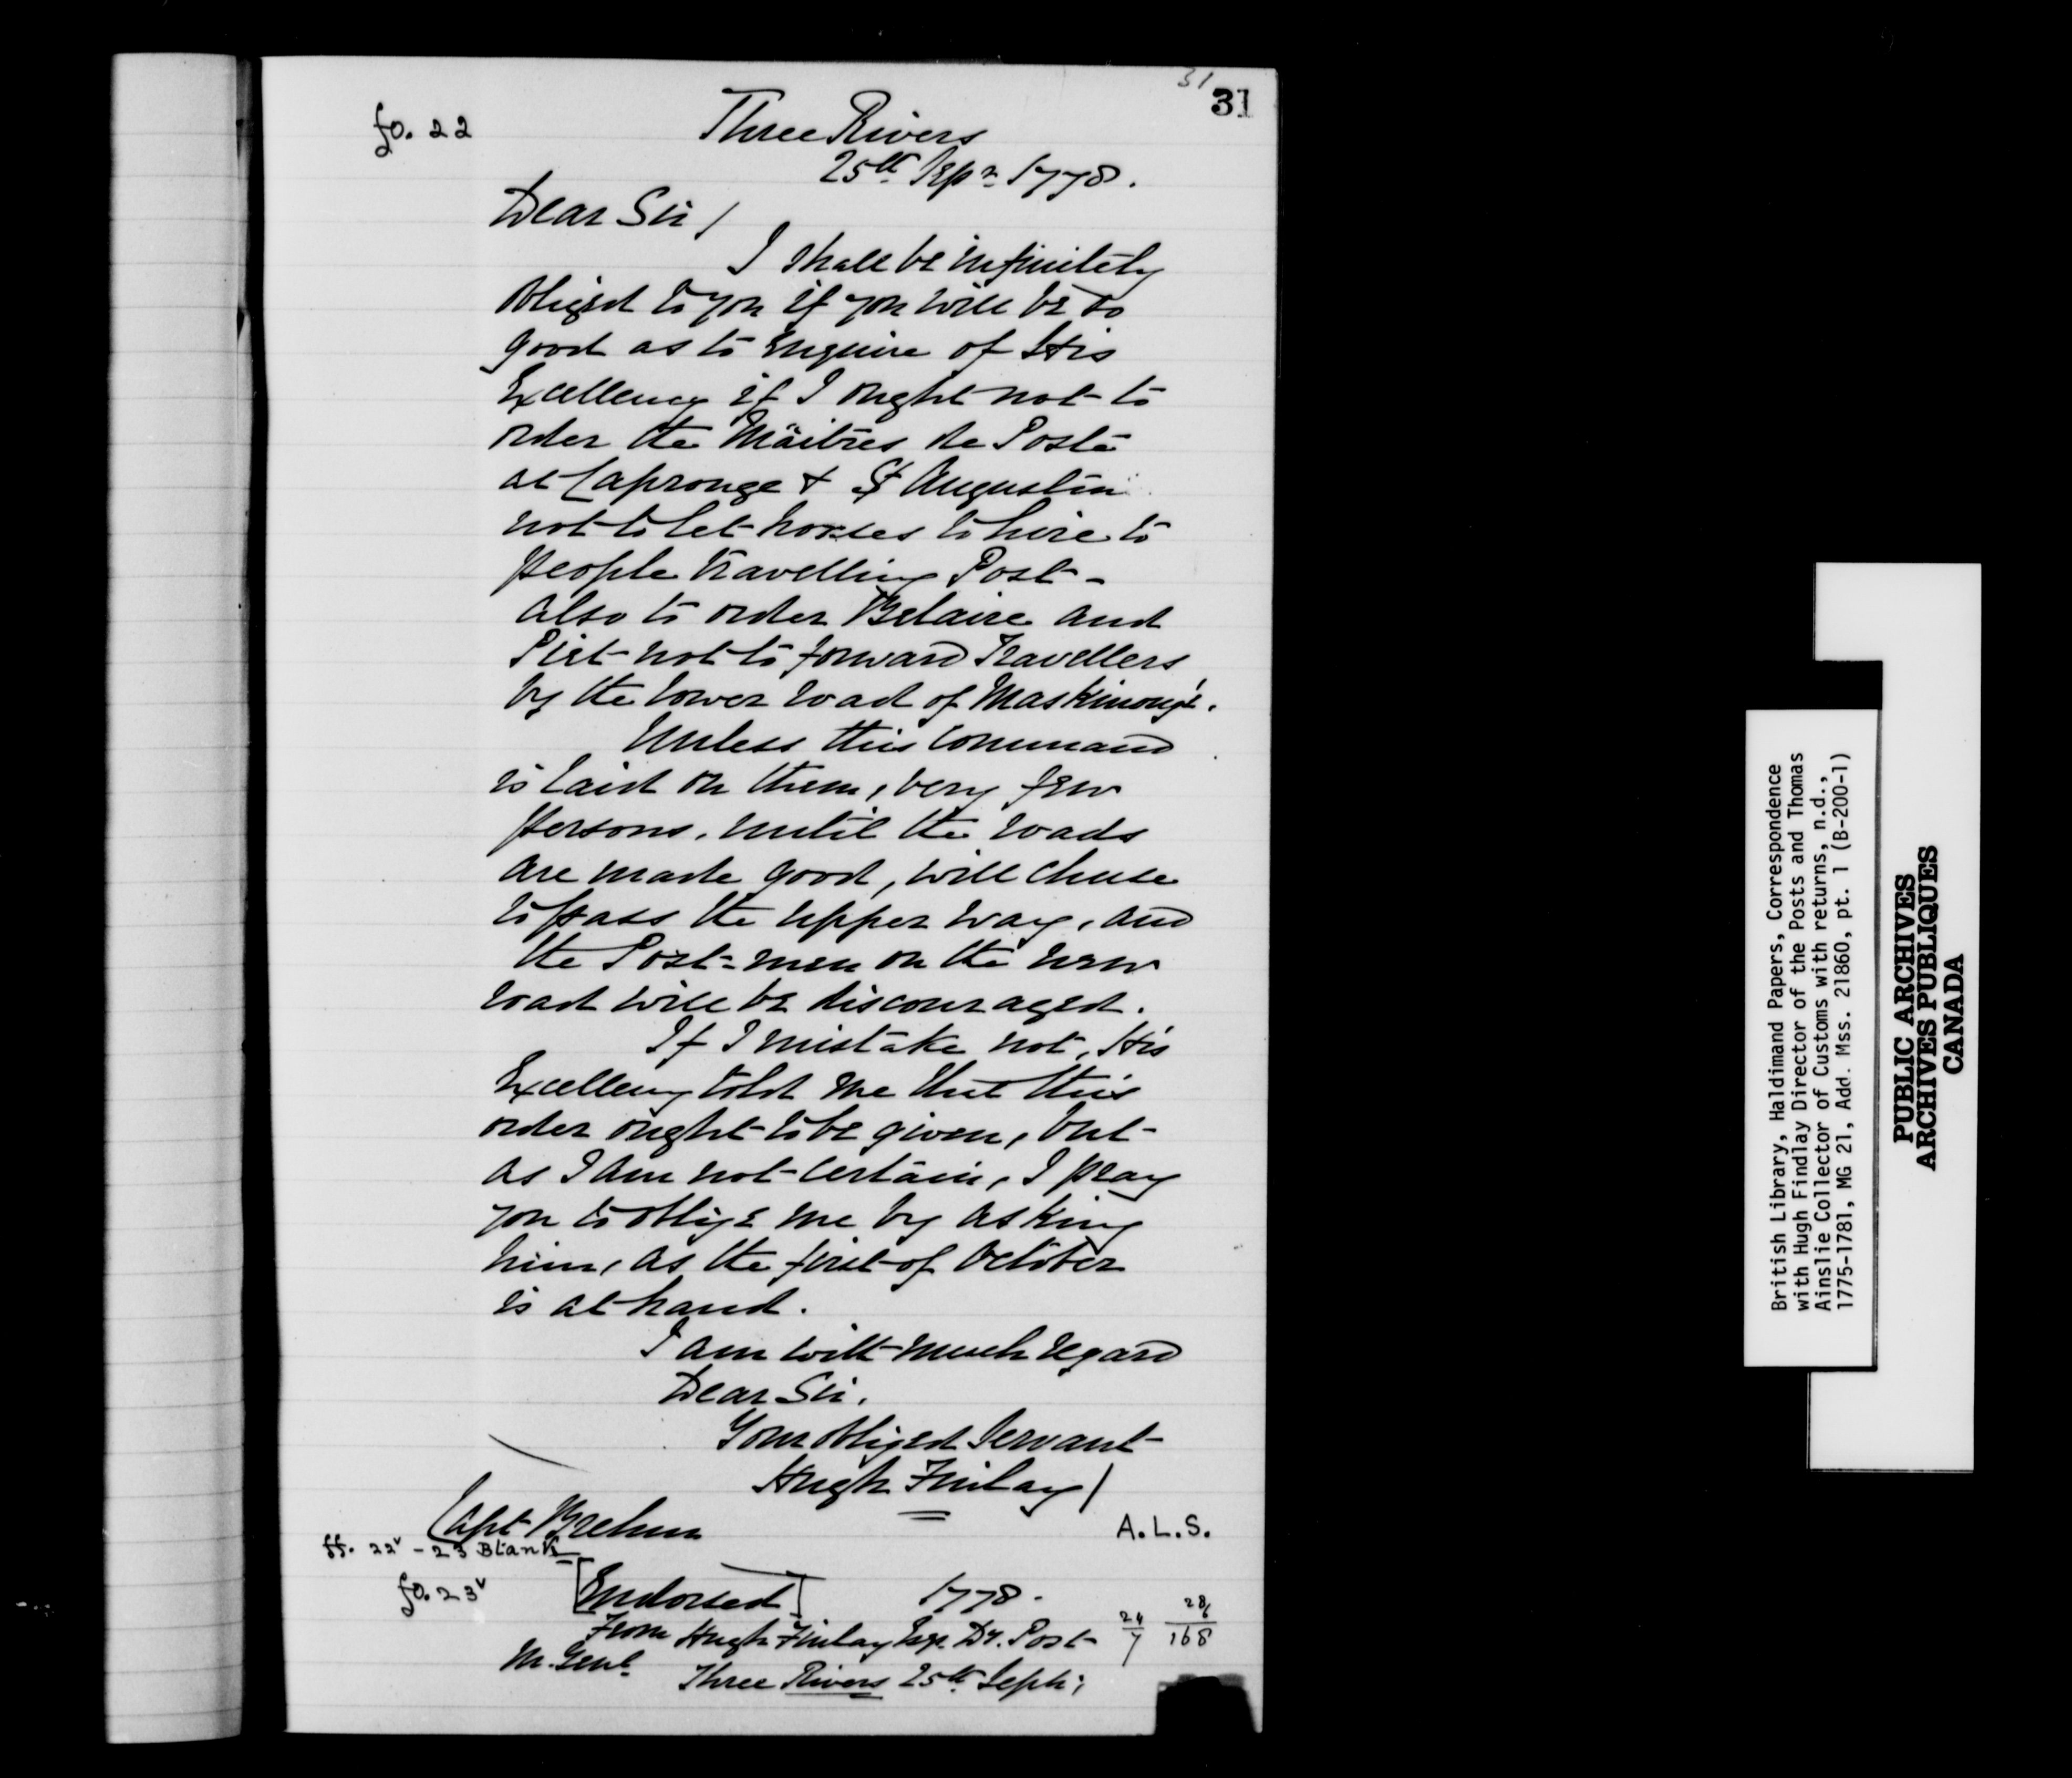 31
31
fo. 22
Three Rivers
25th Sepr 1778.
Dear Sir /
I shall be infinitely
obliged to you if you will be so
good as to enquire of His
Excellency if I ought not to
order the Maitres de Poste
at Caprouge & St Augustin
not to let horses to hire to
people travelling Post -
also to order Belaire and
not to forward Travellers
by the lower road of Maskinongé.
Unless this command
is laid on them, very few
persons, until the roads
are made good, will chuse
to pass the upper way, and
the Post-men on the new
road will be discouraged.
If I mistake not, His
Excellency told me that this
order ought to be given, but -
as I am not certain, I pray
you to oblige me by asking
him, as the first of October
is at hand.
I am with much regard
Dear Sir,
Your obliged Servant
Hugh Finlay /
Capt Brehm
A.L.S.
ff. 22v - 23 Blank
fo. 23v
[Endorsed] 1778.
From Hugh Finlay Esqr. Dy. Post-
M. Genl.
Three Rivers 25th Septr;
24
7
28/6
168
British Library, Haldimand Papers, Correspondence
with Hugh Findlay Director of the Posts and Thomas
Ainslie Collector of Customs with returns, n.d.,
1775-1781, MG 21, Add. Mss. 21860, pt. 1 (B-200-1)
PUBLIC ARCHIVES
ARCHIVES PUBLIQUES
CANADA